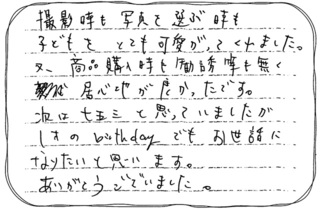 撮影時も写真を選ぶ時も
子どもをとても可愛がってくれました。
又、商品購入時も勧誘等も無く
居心地が良かったです。
次は七五三と思っていましたが
birthdayでもお世話に
なりたいと思います。
ありがとうございました。